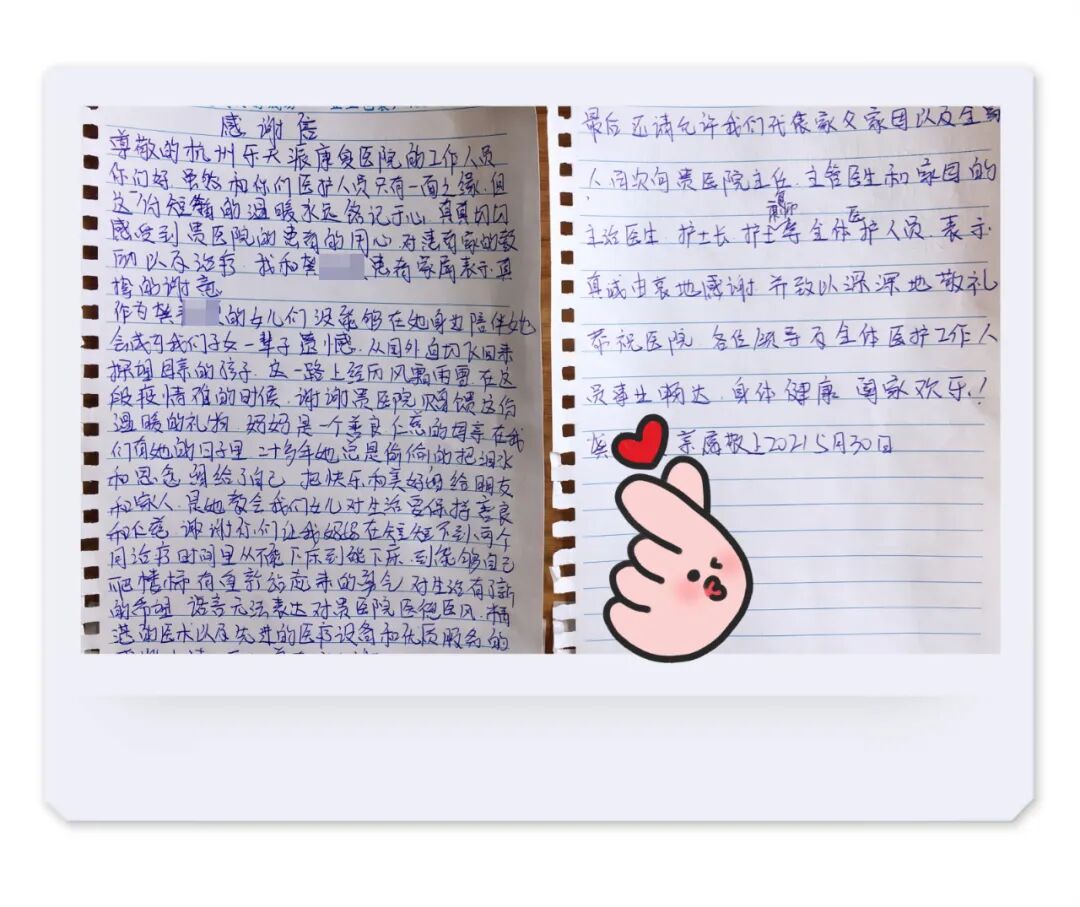 感谢信
尊敬的杭州乐天派康复医院的工作人员
你们好.虽然和你们医护人员只有一面之缘.但
这份短暂的温暖永远铭记于心.真真切切
感受到贵医院的患者的用心.对患者家的鼓
励以及治疗.我和龚 患者家属表示真
挚的谢意
作为龚 的女儿们没能够在她身边陪伴她
会成为我们子女一辈子遗憾.从国外包机飞回来
探望母亲的孩子.这一路上经历风霜雨雪.在这
段疫情难的时候.谢谢贵医院 馈这份
温暖的礼物.妈妈是一个善良仁慈的母亲在我
们有她的日子里.二十多年她总是偷偷的把泪水
和思念留给了自己.把快乐和美好的给朋友
和家人.是她教会我们女儿对生活要保持善良
和仁慈.谢谢你们让我妈妈在短短不到两个
月治疗时间里从不能下床到能下床.到能够自己
吃 有重新站起来的 对生活有了新
的希望.语言无法表达对贵医院医德医风.精
湛的医术以及先进的医疗设备和优质服务的
最后还请允许我们代表家父家母以及全
人 次向贵医院主任.主管医生和家母的
主治医生.护士长.护士等全体医护人员.表示
真诚由衷地感谢.并致以深深地敬礼
恭祝医院.各位领导及全体医护工作人
员事业畅达.身体健康.阖家欢乐!
龚 亲属敬上2021 5月30日